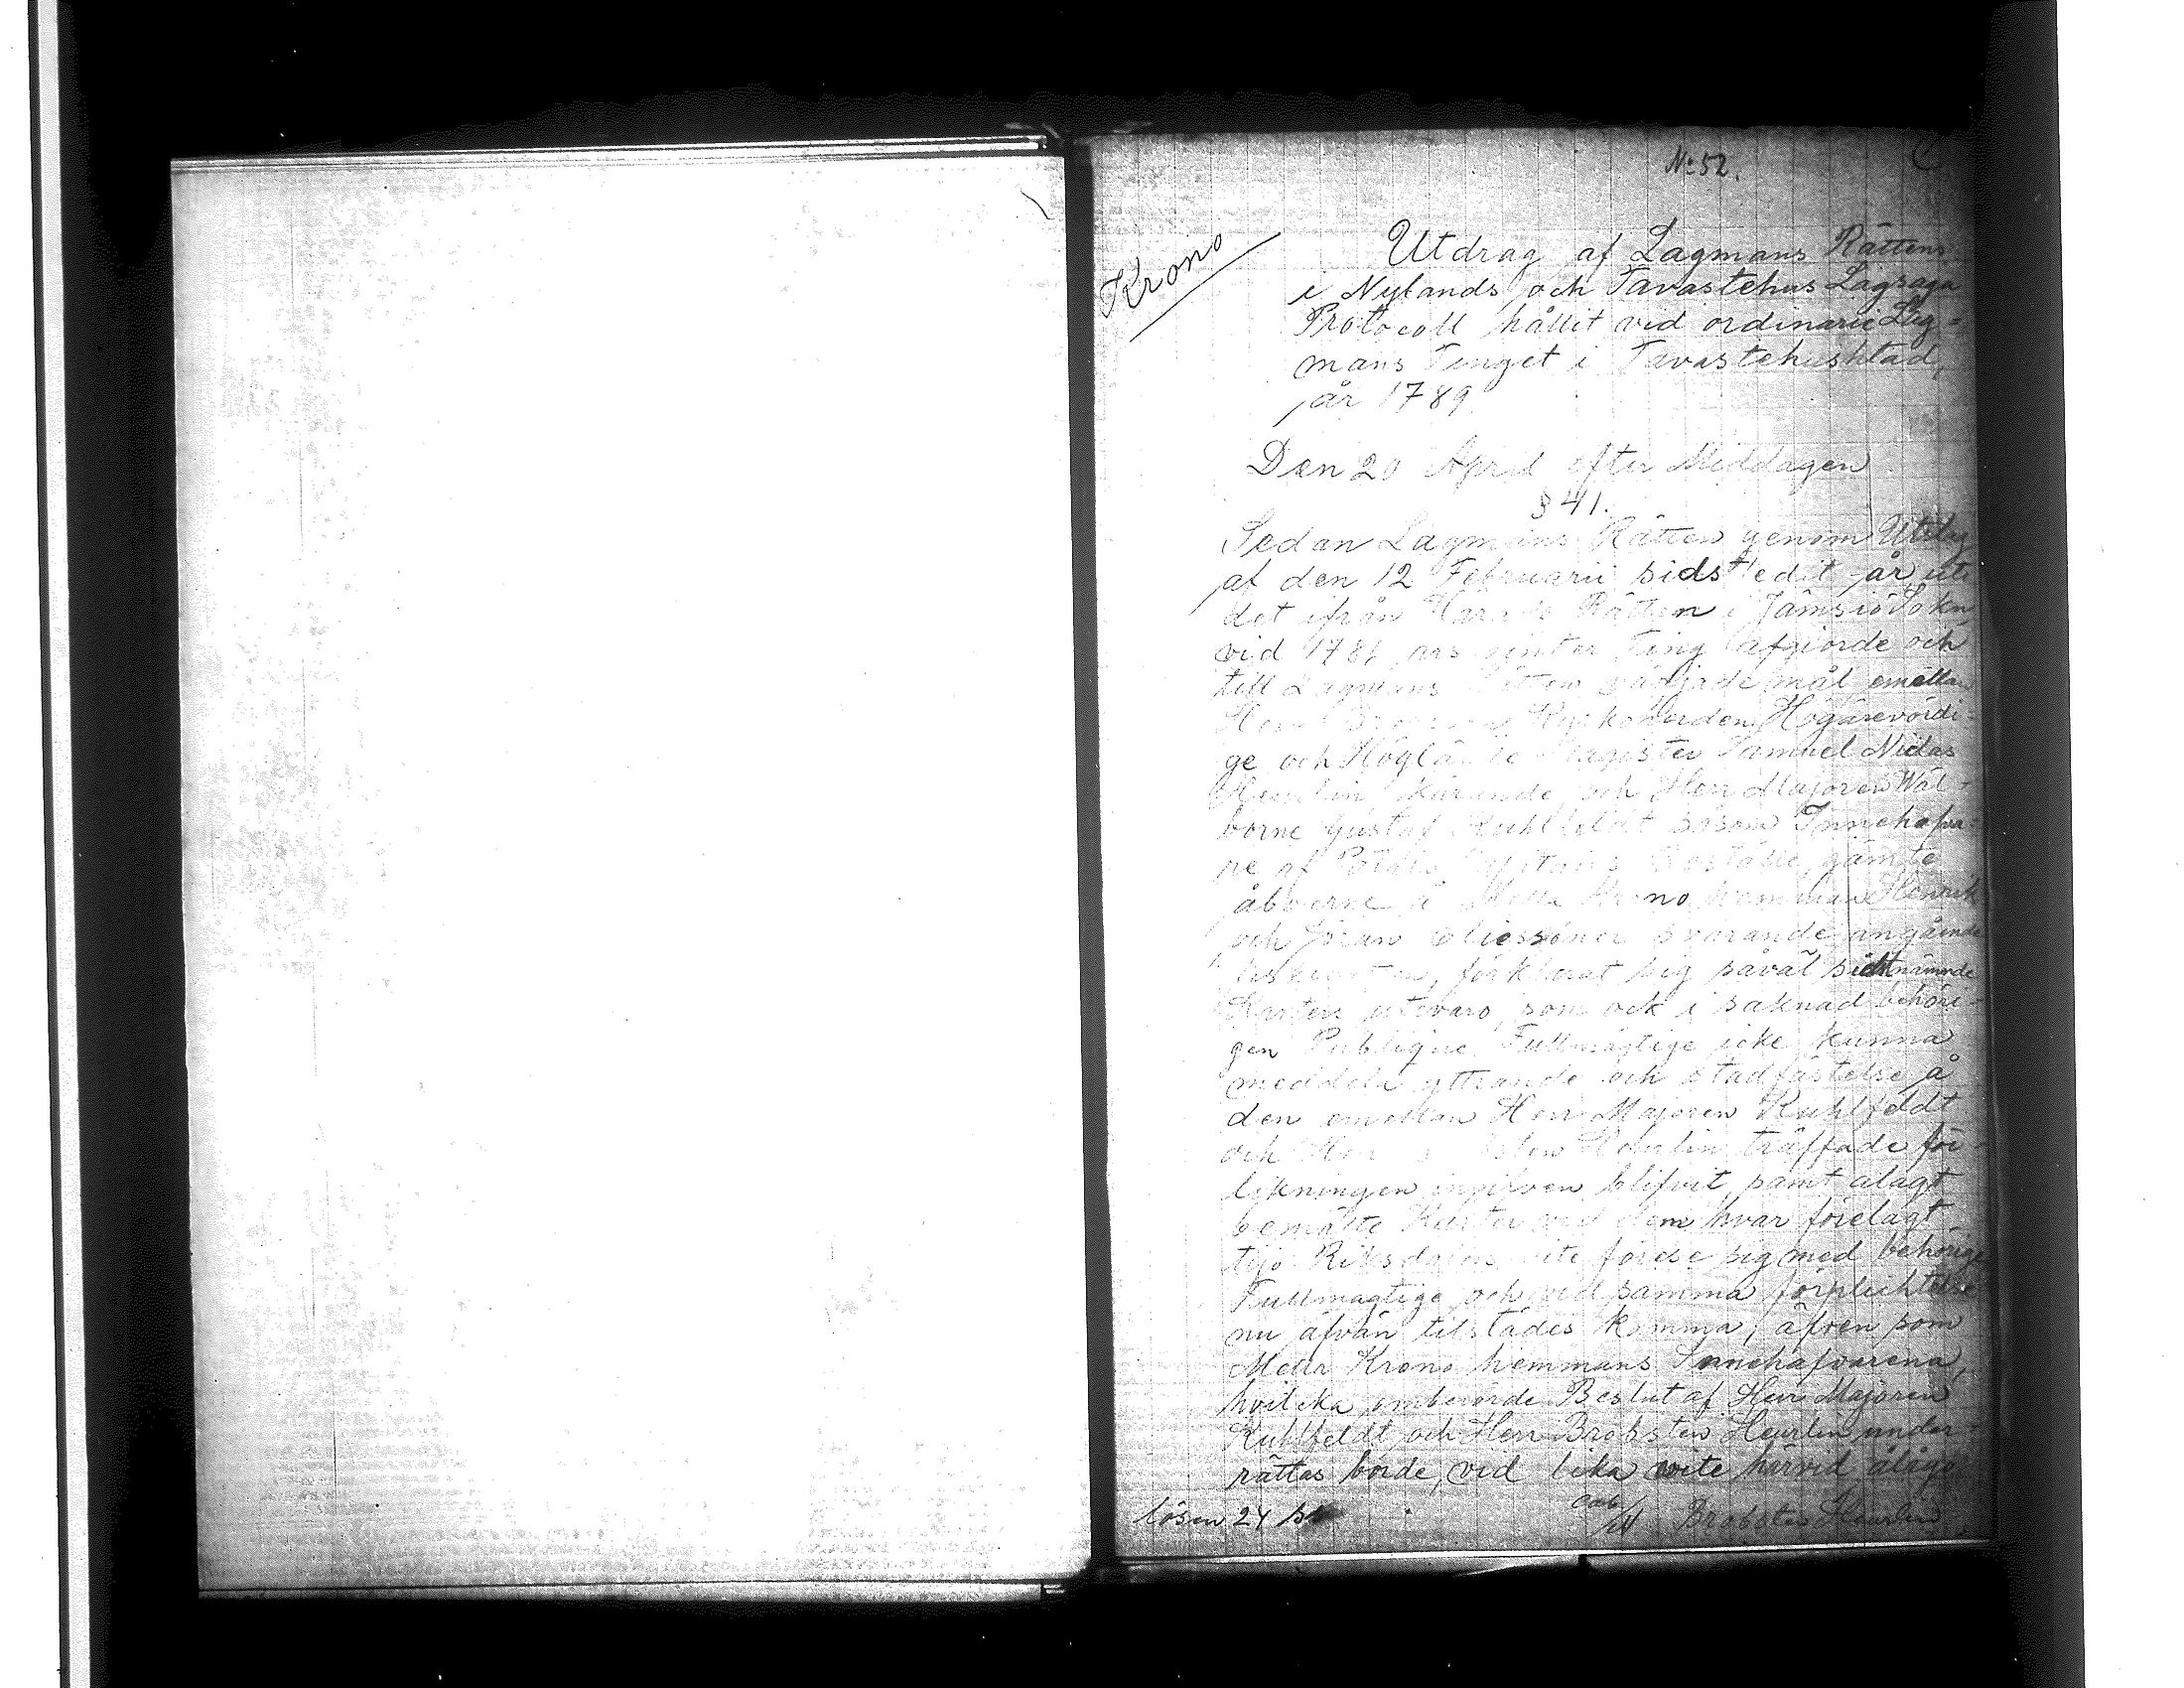 No 52.
Krono
Utdrag af Lagmans Rättens
i Nylands och Tavastehus Lagsaga
Protocoll hållit vid ordinarie Lag-
mans Tinget i Tavastehus stad,
år 1789
Den 20 April efter Middagen
§ 41.
Sedan Lagmans Rätten genom Utslag
af den 12 Februarii sidstledit år, uti
det ifrån Härads Rätten i Jämsiö Sokn
vid 1781 års vinter Ting afgiorde och
till Lagmans Rätten vädjade mål emellan
Kyrkoherden Högärevördi-
ge och Höglärde Magister Samuel Nidas
Heurlin kärande, och Herr Majoren Wäl-
borne Gustaf Ruhlfeldt såsom Innehafva-
re af Boställe, jämte
åboerne å Krono hemman Henrik
och Jöran Eliessöner svarande, angående
förklarat sig såväl sidstnämnde
utevaro, som ock i saknad behöri-
gen Publique Fullmägtige icke kunna
meddela yttrande och stadfästelse å
den emellan Herr Majoren Ruhlfeldt
och Heurlin träffade för-
likningen ingifven blifvit, samt ålagt
bemälte vid dem hvar förelagt
tijo Riksdalers vite förese sig med behörige
Fullmägtige och vid samma förplichtelse
nu äfvän tilstädes komma, äfven som
Krono hemmans Innehafvarena,
hvilka omberörde Beslut af Herr Majoren
Ruhlfeldt och Herr Brobsten Heurlin under-
rättas borde, vid lika wite härvid ålåge
lösen 24 sk
Brobsten Heurlin